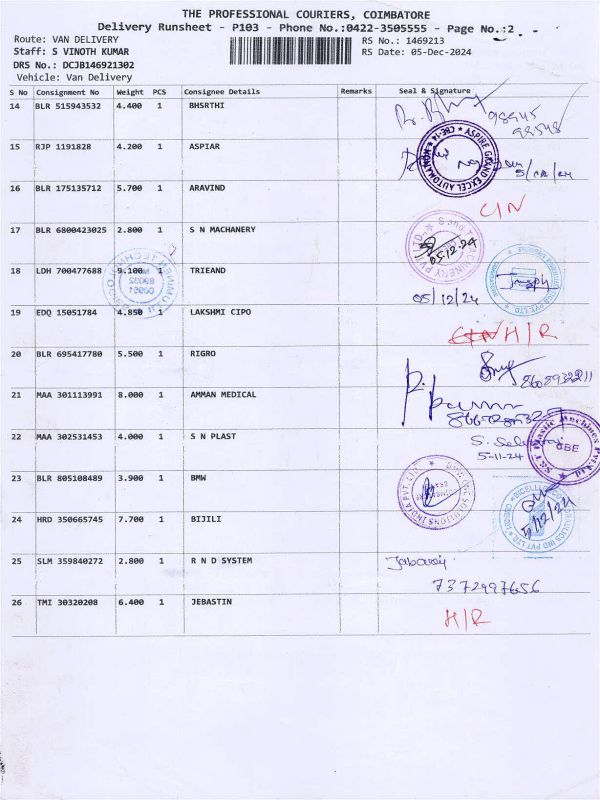 THE PROFESSIONAL COURIERS, COIMBATORE
Delivery Runsheet - P103 - Phone No.:0422-3505555 - Page No.:2
Route: VAN DELIVERY RS No.: 1469213
Staff: S VINOTH KUMAR RS Date: 05-Dec-2024
DRS No.: DCJB146921302
Vehicle: Van Delivery
S No Consignment No Weight PCS Consignee Details Remarks Seal & Signature
14 BLR 515943532 4.400 1 BHSRTHI
98945
98548
15 RJP 1191828 4.200 1 ASPIAR
ASPIRE GRAND EXCEL AUTOMATION CBE-14
16 BLR 175135712 5.700 1 ARAVIND
C/N
17 BLR 6800423025 2.800 1 S N MACHANERY
05.12.24
18 LDH 700477688 9.100 1 TRIEAND
05/12/24
Joseph
19 EDQ 15051784 4.850 1 LAKSHMI CIPO
H/R
20 BLR 695417780 5.500 1 RIGRO
21 MAA 301113991 8.000 1 AMMAN MEDICAL
22 MAA 302531453 4.000 1 S N PLAST
5-11-24
CBE
23 BLR 805108489 3.900 1 BMW
24 HRD 350665745 7.700 1 BIJILI
5/12/24
25 SLM 359840272 2.800 1 R N D SYSTEM
7372997656
26 TMI 30320208 6.400 1 JEBASTIN
H/R